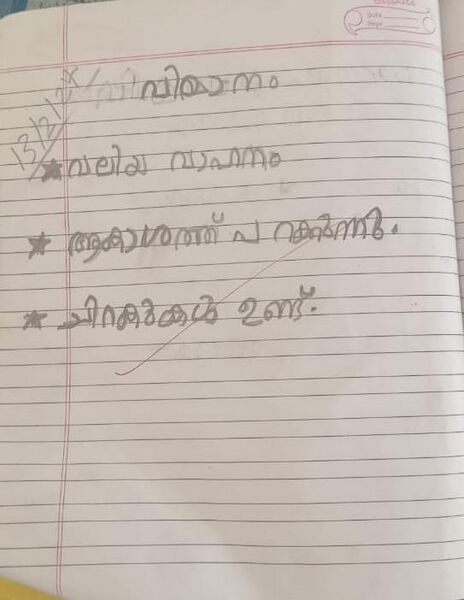 വിമാനം
★ വലിയ വാഹനം
★ ആകാശത്ത് പറക്കുന്നു.
★ ചിറകുകൾ ഉണ്ട്.
Date
Page